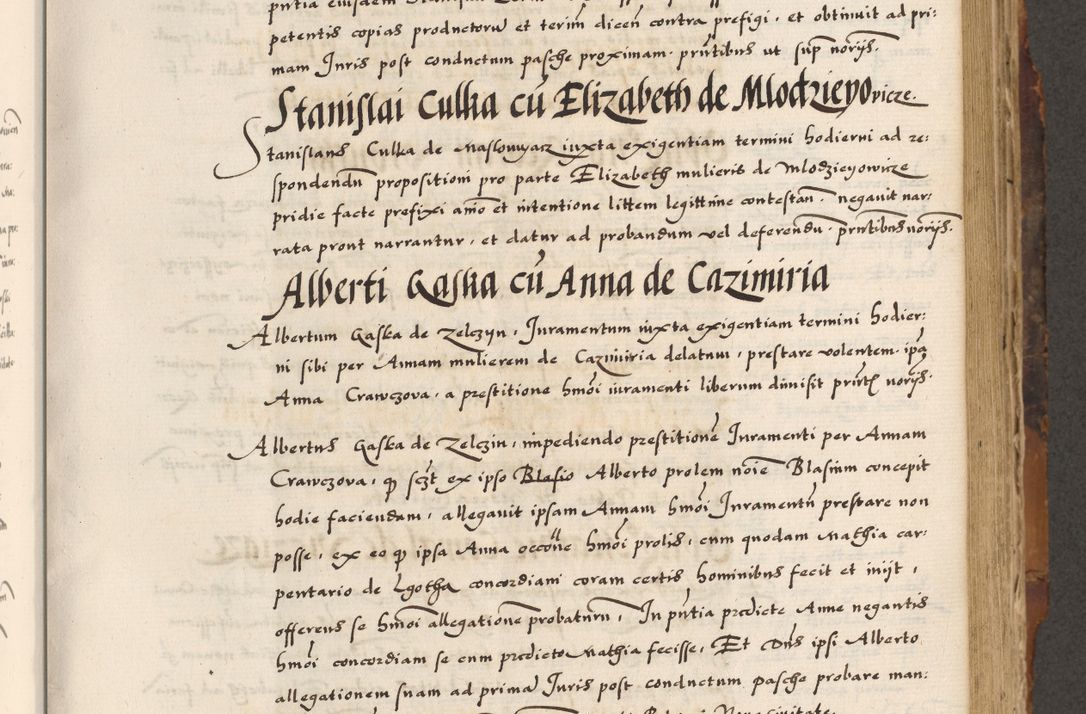 petentis copias productorū et terim̄ dicen̄ contra prefigi, et obtinuit ad pri:
mam Juris post conductum pasche proximam. prn̄tibus ut sup̄ norijs.
Stanislai Culka cū Elizabeth de Mlodzieyovicze.
Stanislaus Culka de Maslowyacz iuxta exigentiam termini hodierni ad re:
spondendū propositioni pro parte Elizabeth mulieris de Mlodzieyowicze
pridie facte prefixi anīo et intentione littem legittime contestan̄. negauit nar:
rata prout narrantur, et datur ad probandum vel deferendū. prn̄tibus norijs.
Alberti Gaska cū Anna de Cazimiria
Albertum Gaska de Zelczyn, Juramentum iuxta exigentiam termini hodier:
ni sibi per Annam mulierem de Cazimiria delatum, prestare volentem. ip̄a
Anna Crawczova, a prestitione hm̄oi iuramenti liberum dimisit prn̄t norijs.
Albertus Gaska de Zelczin, impediendo prestitionē Juramenti per Annam
Crawczova, q sczt ex ipso Blasio Alberto prolem noīe Blasium concepit
hodie faciendum, allegauit ipsam Annam hm̄oi Juramentū prestare non
posse, ex eo q ipsa Anna occōne hm̄oi prolis, cum quodam Mathia car:
pentario de Lgotha concordiam coram certis hominibus fecit et inijt,
offerens se hm̄oi allegationē probaturū, In pn̄tia predicte Anne negantis
hm̄oi concordiam se cum predicto Mathia fecisse, Et Dn̄s ipsi Alberto
allegationem suam ad primā Juris post conductum Pasche probare man: